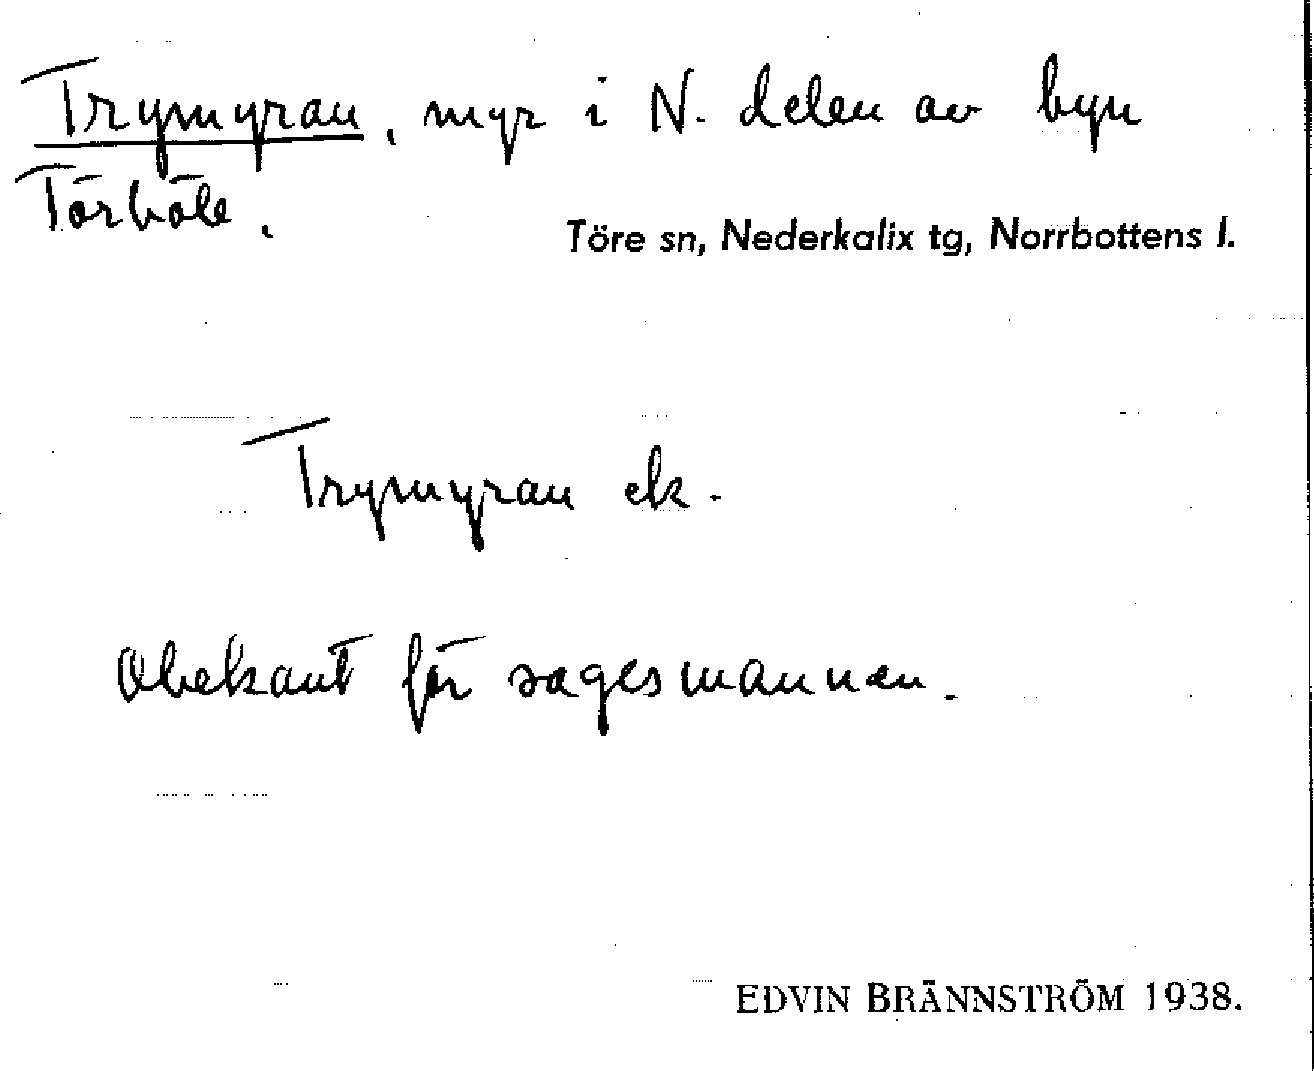 Trymyran, myr i N. delen av byn
Törböle.
Töre sn, Nederkalix tg, Norrbottens l.
Trymyran ek.
Obekant för sagesmannen.
EDVIN BRÄNNSTRÖM 1938.